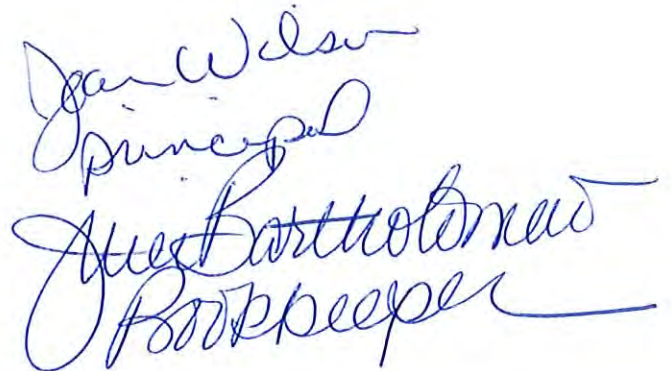 Jean Wilson
principal
Bartholomew
Bookkeeper